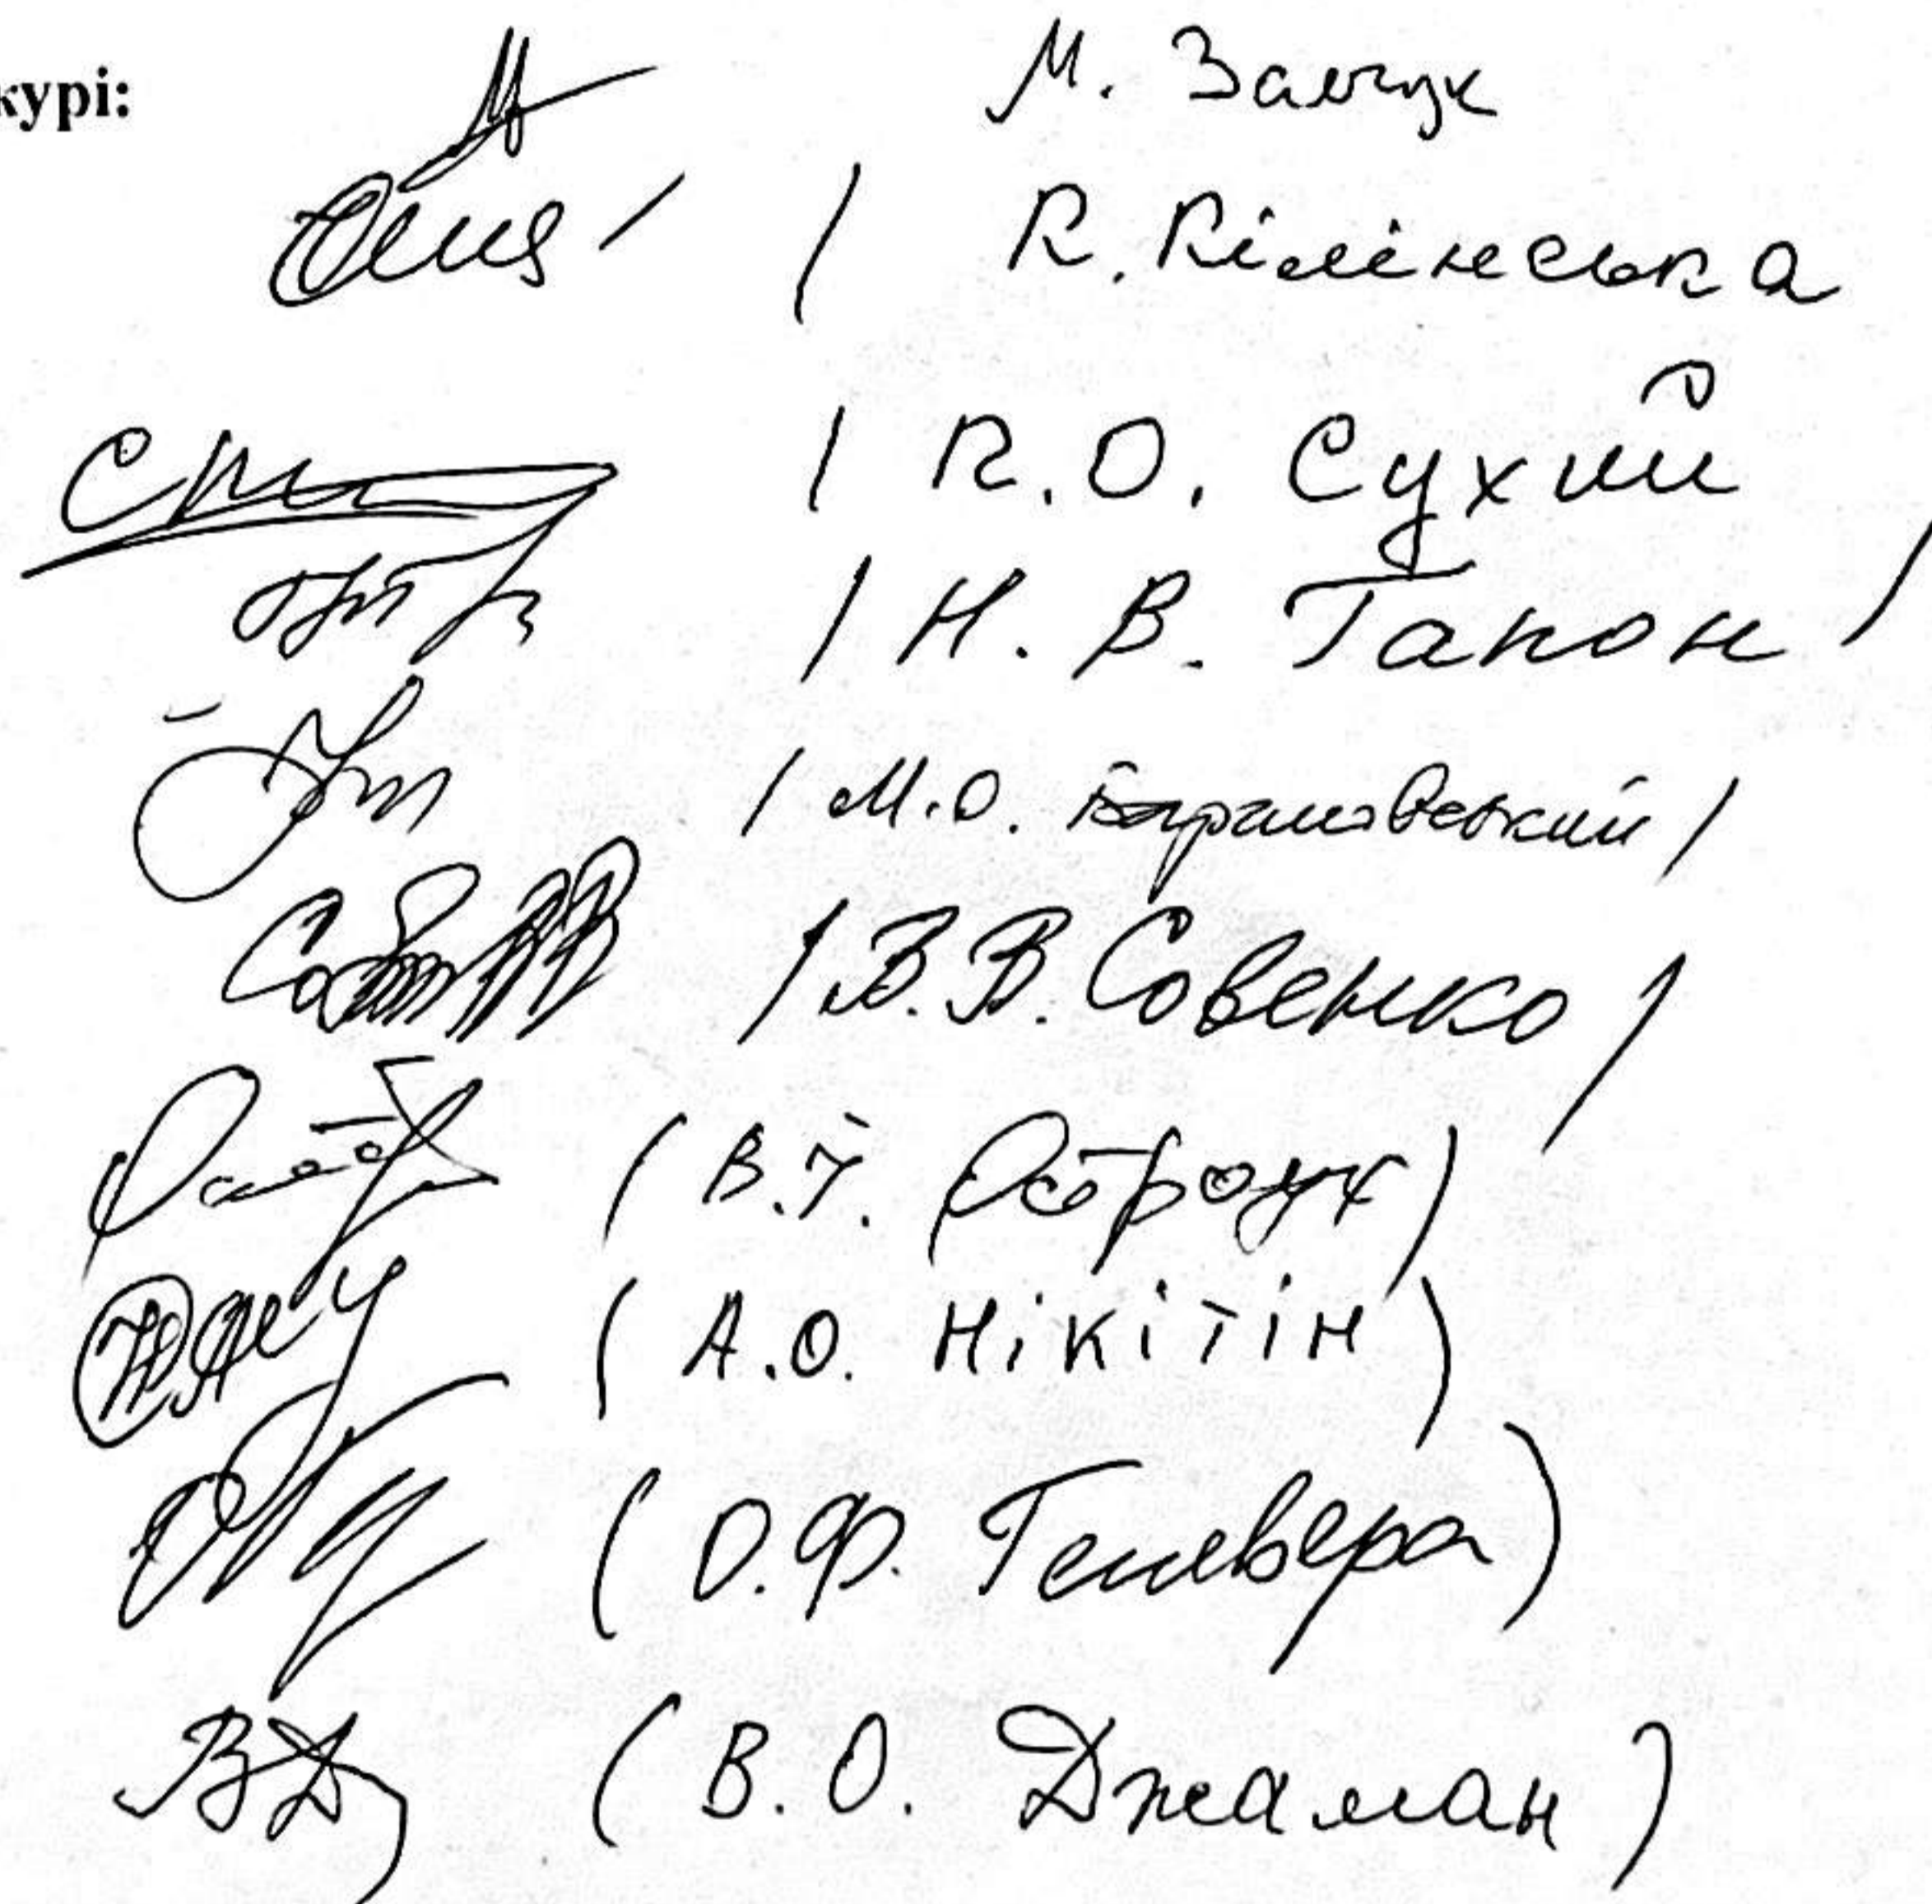 курі:
М.
/ К. Кілінська
/ К.О. Сухий
/ Н. В. Гапон /
/ М.О. Барановський /
/ В.В. Совенко /
( В.І. Остроух )
( А.О. Нікітін )
( О.Ф. Гелевера )
( В.О. Джаман )